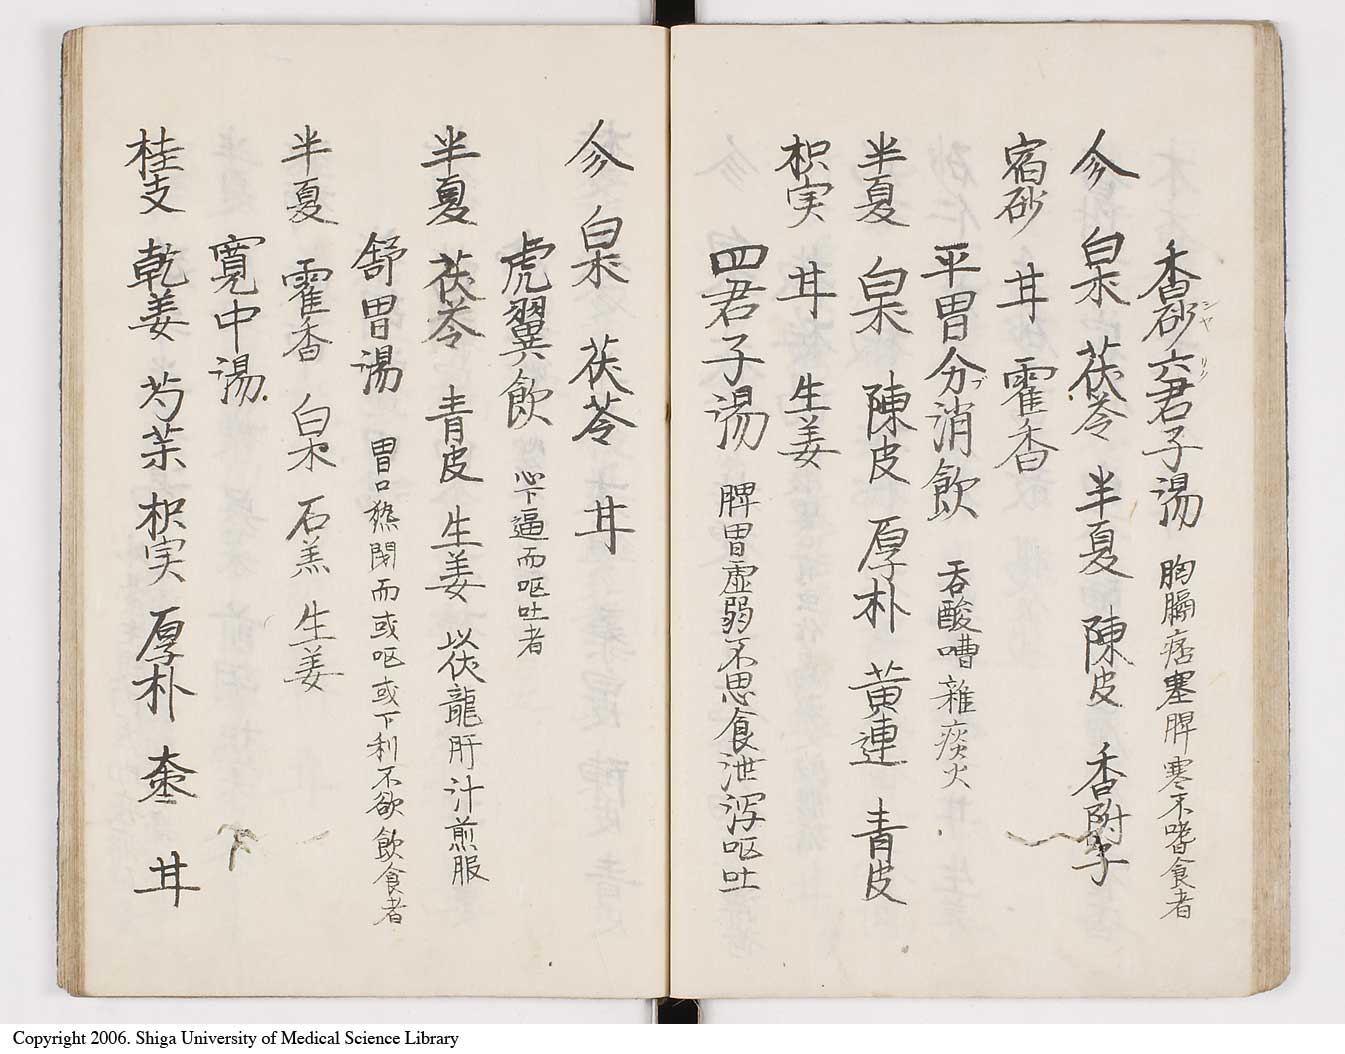 香砂六君子湯 胸膈痞塞脾寒不嗜食者
シヤ リツ
参 白朮 茯苓 半夏 陳皮 香附子
宿砂 甘 藿香
平胃分消飲 吞酸嘈雜痰火
ブ
半夏 白朮 陳皮 厚朴 黄連 青皮
枳実 甘 生姜
四君子湯 脾胃虚弱不思食泄瀉呕吐
参 白朮 茯苓 甘
虎翼飲 心下逼而呕吐者
半夏 茯苓 青皮 生姜 以伏龍肝汁煎服
舒胃湯 胃口熱閉而或呕或下利不欲飲食者
半夏 藿香 白朮 石羔 生姜
寛中湯
桂支 乾姜 芍薬 枳実 厚朴 枣 甘
Copyright 2006. Shiga University of Medical Science Library